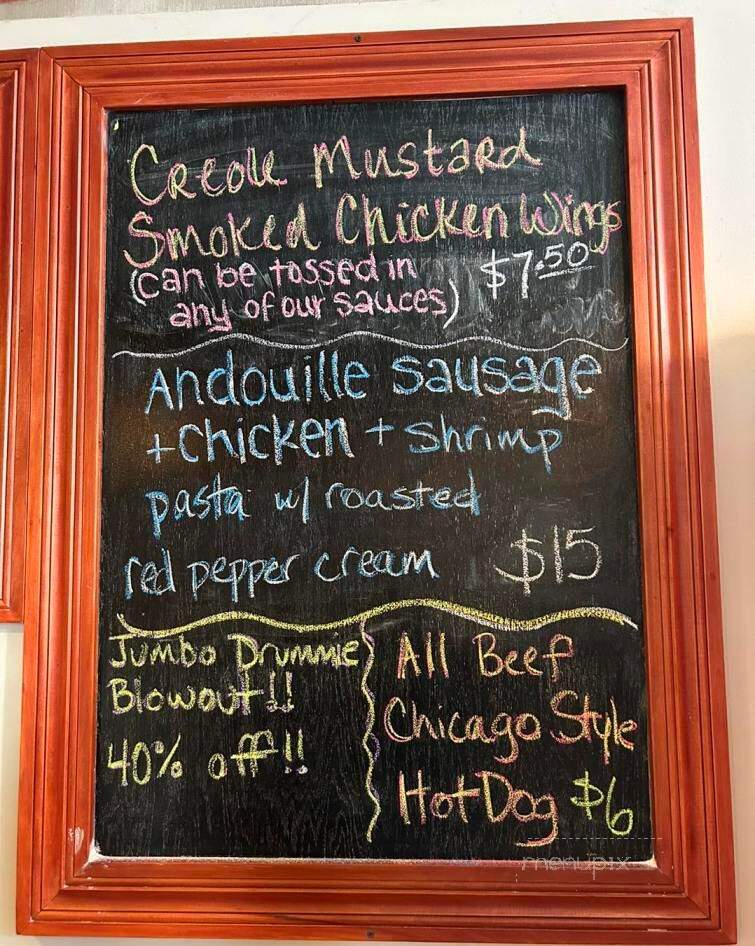 Creole Mustard
Smoked Chicken Wings
(can be tossed in
any of our sauces) $7.50
Andouille sausage
+ chicken + shrimp
pasta w/ roasted
red pepper cream $15
Jumbo Drummie
Blowout!!
40% off!!
All Beef
Chicago Style
Hot Dog $6
menupix